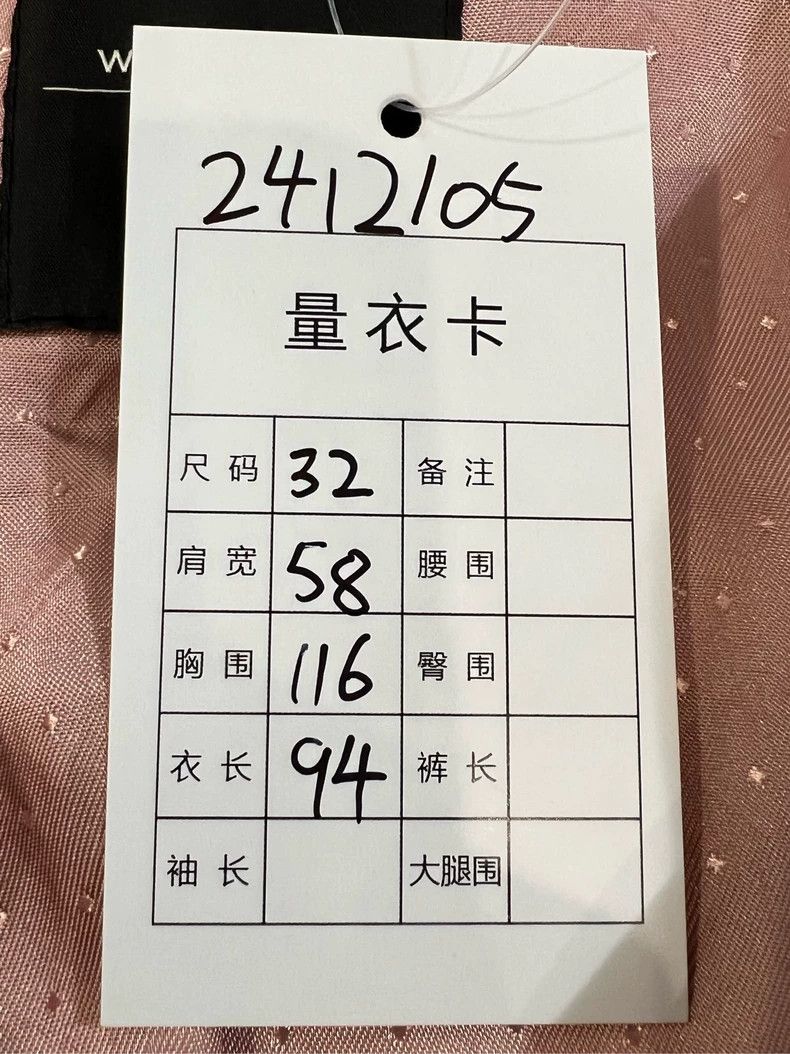 W
2412105
量衣卡
尺码 32 备注
肩宽 58 腰围
胸围 116 臀围
衣长 94 裤长
袖长 大腿围